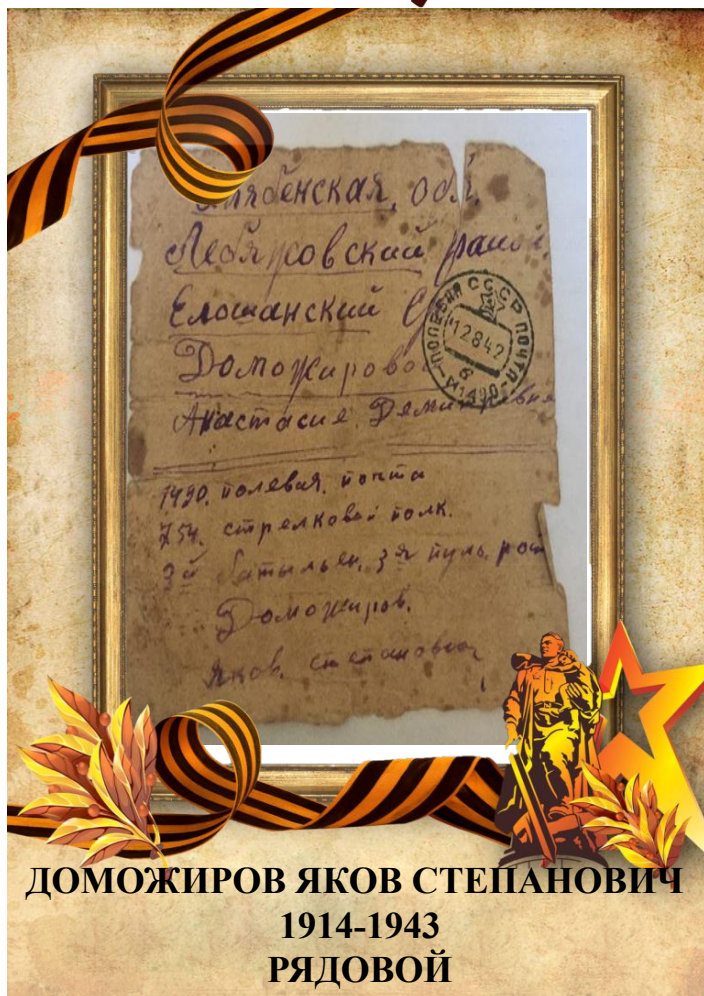 обл.
Лебяжовский район.
Елошанский
Доможирово
Анастасие
ПОЛЕВАЯ СССР ПОЧТА
12842
б
1490
1490. полевая. почта
754. стрелковой полк.
3й батыльен, 3я пуль. рот
Доможиров.
Яков. степанович
ДОМОЖИРОВ ЯКОВ СТЕПАНОВИЧ
1914-1943
РЯДОВОЙ